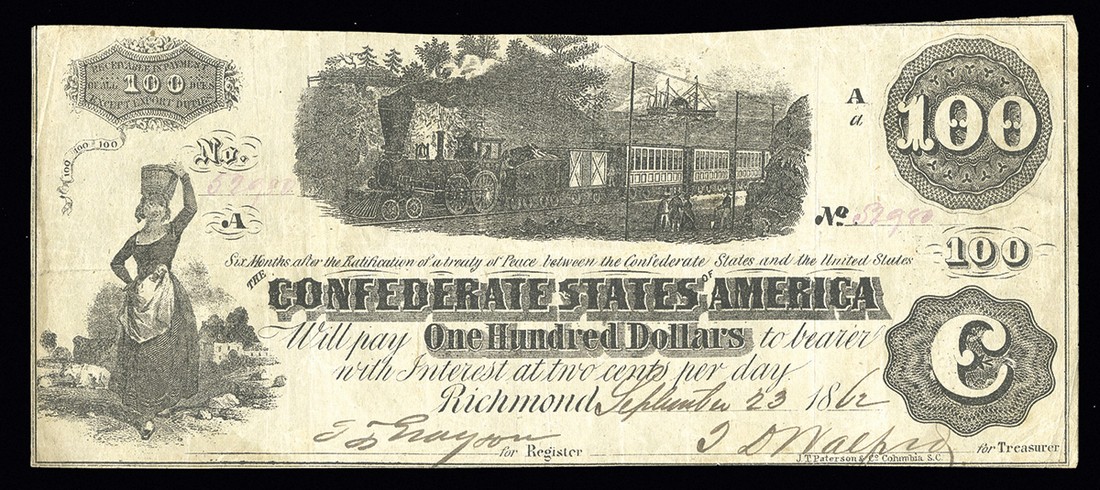 RECEIVABLE IN PAYMENT
OF ALL 100 DUES
EXCEPT EXPORT DUTIES
100 100 100
No.
52980
A
A
a
100
No. 52980
100
Six Months after the Ratification of a treaty of Peace between the Confederate States and the United States
THE CONFEDERATE STATES OF AMERICA
Will pay One Hundred Dollars to bearer
with Interest at two cents per day
Richmond September 23 1862
C
for Register
for Treasurer
J.T. Paterson & Co. Columbia S.C.